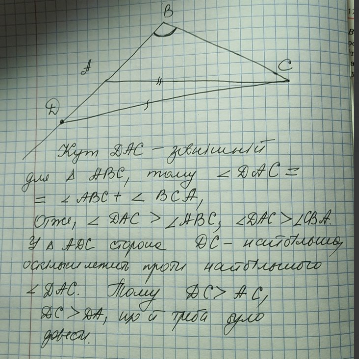 B
A
C
D
Кут DAC – зовнішній
для Δ ABC, тому ∠DAC =
= ∠ABC + ∠BCA,
Отже, ∠DAC > ∠ABC, ∠DAC > ∠CBA
У Δ ADC сторона DC – найбільша,
проти найбільшого
∠DAC. Тому DC > AC,
DC > DA, що й треба було
довести.